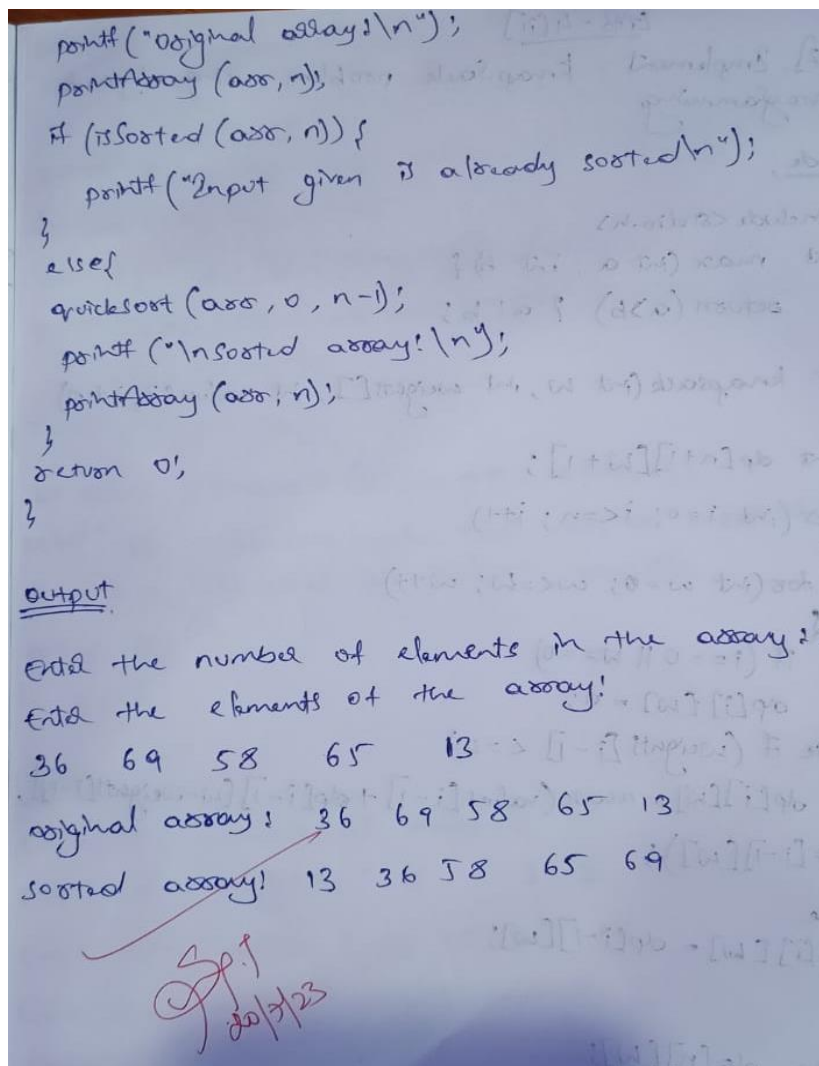 printf ("Original array:\n");
printArray (arr, n);
if (isSorted (arr, n)) {
printf ("Input given is already sorted\n");
}
else{
quicksort (arr, 0, n-1);
printf ("\nSorted array:\n");
printArray (arr, n);
}
return 0;
}
output
Enter the number of elements in the array:
Enter the elements of the array:
36 69 58 65 13
original array: 36 69 58 65 13
sorted array: 13 36 58 65 69
20/7/23